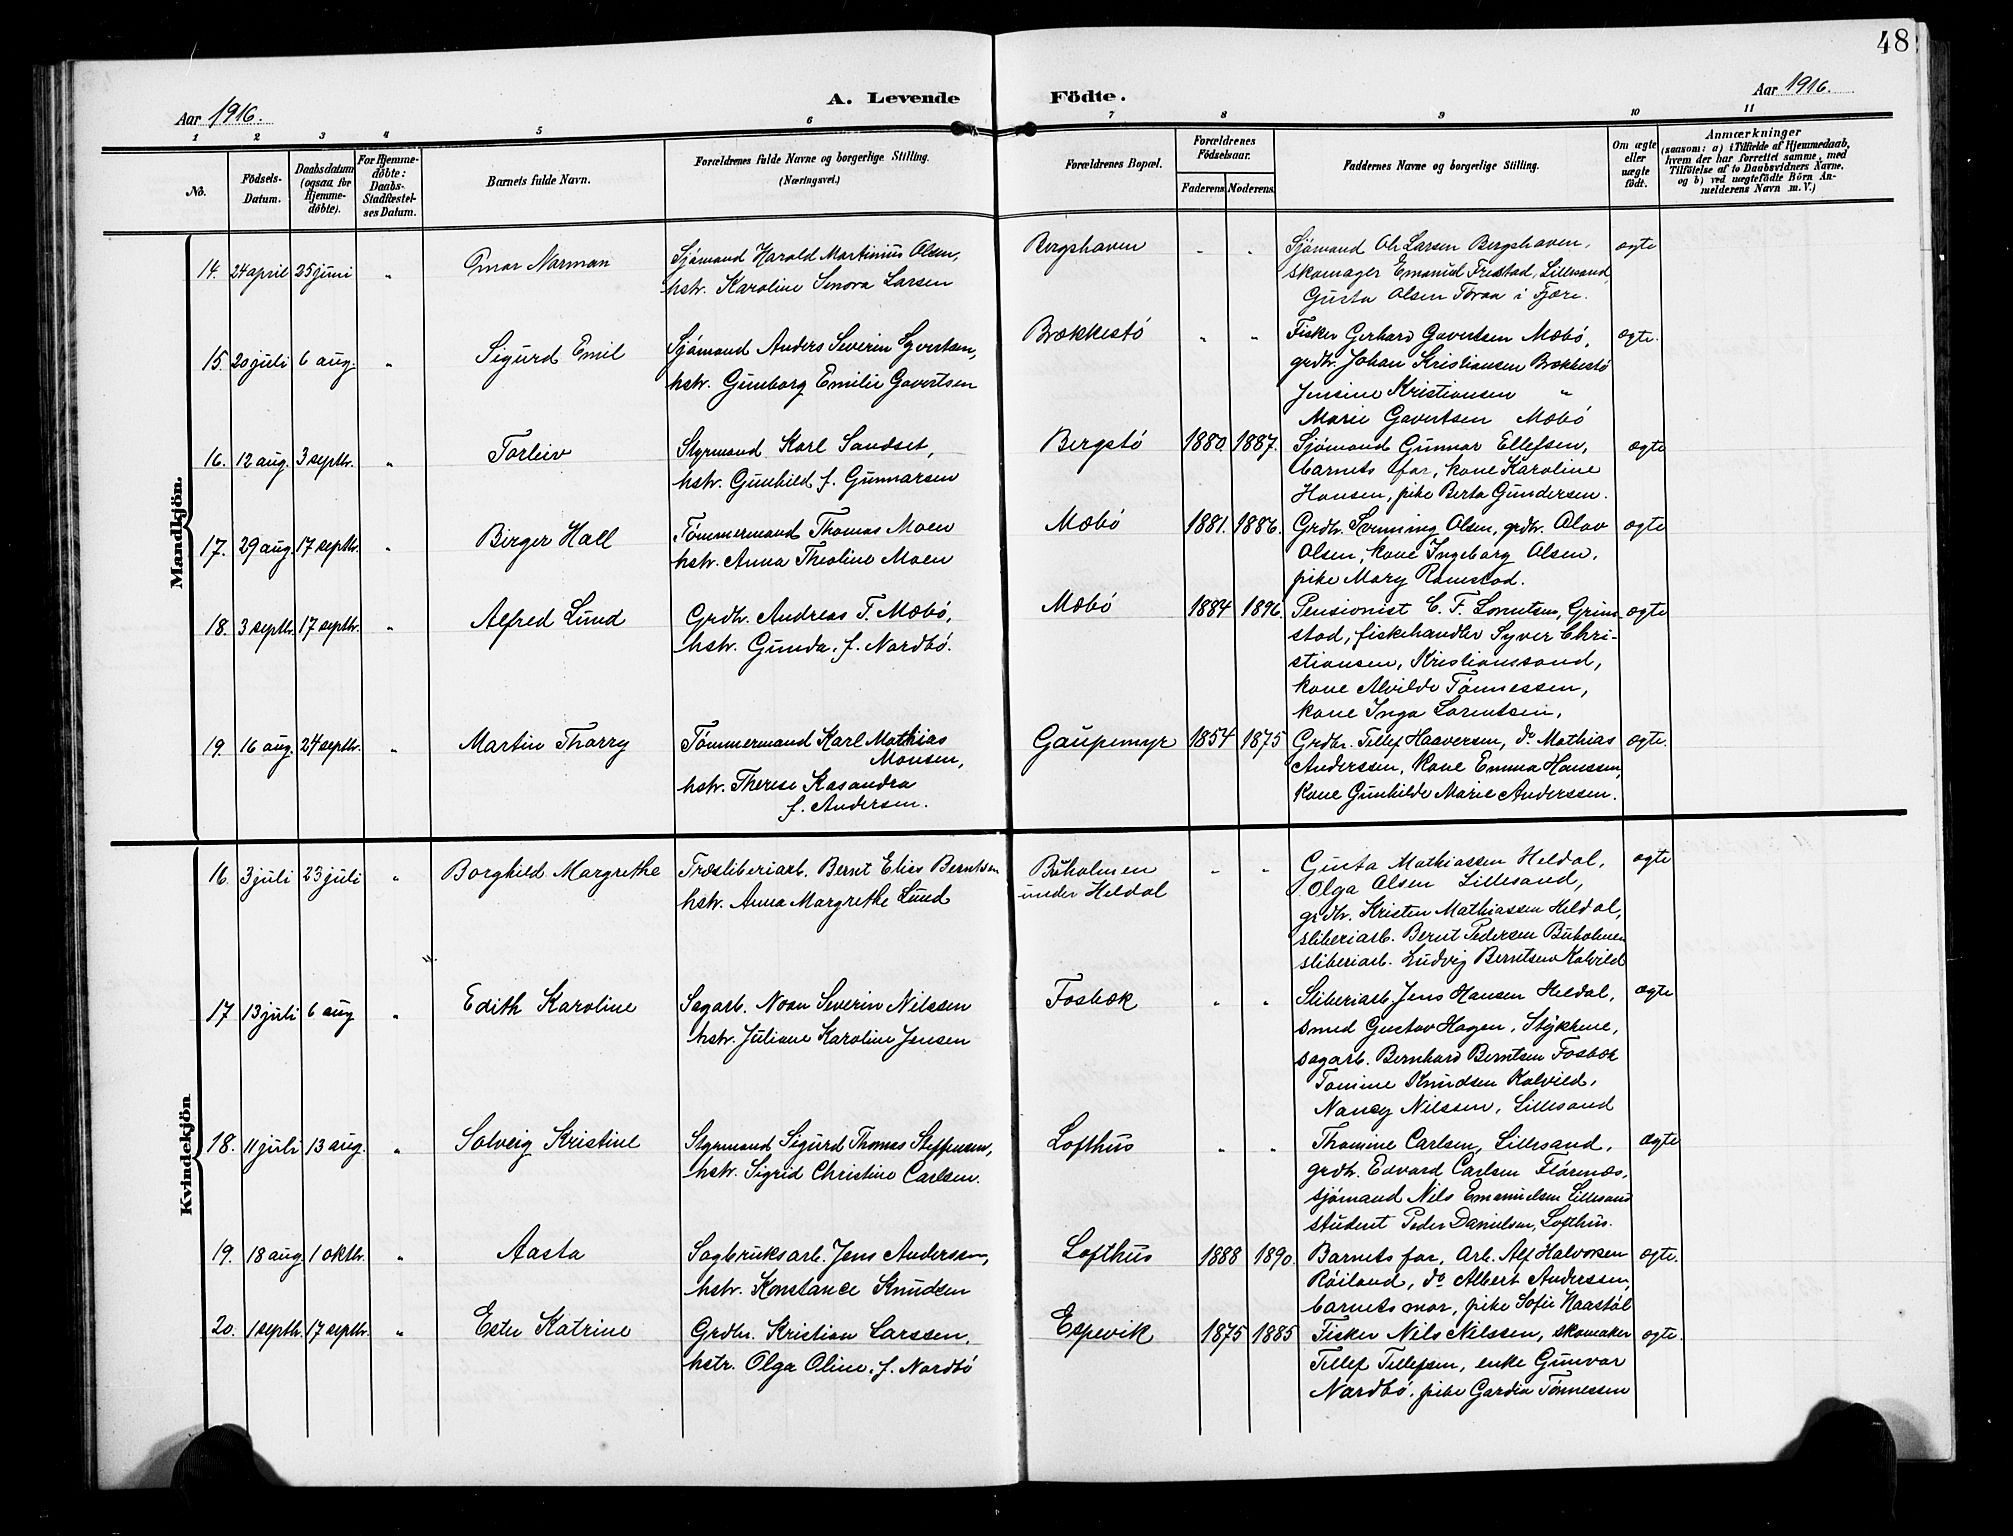 48
Aar 1916.
A. Levende Födte.
Aar 1916.
1 2 3 4 5 6 7 8 9 10 11
No.
Födsels-Datum.
Daabsdatum (ogsaa for Hjemmedöbte).
For Hjemmedöbte: Daabs-Stadfæstelses Datum.
Barnets fulde Navn.
Forældrenes fulde Navne og borgerlige Stilling.
(Næringsvei.)
Forældrenes Bopæl.
Forældrenes Födselsaar.
Faderens. Moderens.
Faddernes Navne og borgerlige Stilling.
Om ægte eller uægte födt.
Anmærkninger
(saasom: a) i Tilfælde af Hjemmedaab, hvem der har forrettet samme, med Tilföielse af to Daabsvidners Navne, og b) ved uægtefödte Börn Anmelderens Navn m. V.)
Mandkjön.
14. 24 april 25 juni " Norman
Sjømand Harald Martinius Olsen,
hstr. Karoline Larsen
Bergshaven " "
Sjømand Ole Larsen Bergshaven,
skomager Emanuel Fristad, Lillesand,
Gusta Olsen i Fjære.
ægte
15. 20 juli 6 aug. " Sigurd Emil
Sjømand Anders Severin Syvertsen,
hstr. Gunborg Emilie Govertsen
Brækkestø " "
Fisker Gerhard Govertsen Mæbø,
grdbr. Johan Kristiansen Brækkestø
Jensine Kristiansen "
Marie Govertsen Mæbø
ægte.
16. 12 aug. 3 septbr. " Torleiv
Styrmand Karl Sandset,
hstr. Gunhild f. Gunnarsen
Bergstø 1880. 1887.
Sjømand Gunnar Ellefsen,
barnets far, kone Karoline
Hansen, pike Berta Gundersen.
ægte
17. 29 aug. 17 septbr. " Birger Hall
Tømmermand Thomas Moen
hstr. Anna Theoline Moen
Mæbø 1881. 1886.
Grdbr. Svenning Olsen, grdbr. Olav
Olsen, kone Ingeborg Olsen,
pike Mary Ramstad.
ægte
18. 3 septbr. 17 septbr. " Alfred Lund
Grdbr. Andreas T. Mæbø,
hstr. Gunda, f. Nordbø.
Mæbø 1884 1896.
Pensionist C. F. Lorentsen, Grim-
stad, fiskehandler Syver Chri-
stiansen, Kristianssand,
kone Alvilde Tønnessen,
kone Inga Lorentsen,
ægte
19. 16 aug. 24 septbr. " Martin Thorry
Tømmermand Karl Mathias
Monsen,
hstr. Therese Kasandra
f. Andersen.
Gaupemyr 1854 1875
Grdbr. Tellef Haaversen, do Mathias
Anderssen, kone Emma Hanssen,
kone Gunhilde Marie Anderssen.
ægte.
Kvindekjön
16. 3 juli 23 juli " Borghild Margrethe
Træsliberiarb. Bernt Elias Berntsen
hstr. Anna Margrethe Lund
Buholmen
under Heldal
" "
Gusta Mathiassen Heldal,
Olga Olsen Lillesand,
grdbr. Kristen Mathiassen Heldal,
sliberiarb. Bernt Pedersen Buholmen
sliberiarb. Ludvig Berntsen Kalvild
ægte
17 13 juli 6 aug " Edith Karoline
Sagarb. Noan Severin Nilssen
hstr. Juliane Karoline Jensen
Fosbæk " "
Sliberiarb. Jens Hansen Heldal,
smed Gustav Hagen, Stykkene,
sagarb. Bernhard Berntsen Fosbæk
Tomine Knudsen Kalvild,
Nancy Nilssen, Lillesand
ægte
18. 11 juli 13 aug. " Solveig Kristine
Styrmand Sigurd Thomas Steffensen,
hstr. Sigrid Christine Carlsen.
Lofthus " "
Thomine Carlsen, Lillesand,
grdbr. Edvard Carlsen Flørenæs,
sjømand Nils Emanuelsen Lillesand
student Peder Danielsen, Lofthus.
ægte
19. 18 aug. 1 oktbr. " Aasta
Sagbruksarb. Jens Anderssen,
hstr. Konstance Knudsen
Lofthus 1888 1890.
Barnets far, Arb. Alf Halvorsen
Røiland, do Albert Anderssen,
barnets mor, pike Sofie Haastøl
ægte.
20. 1 septbr. 17 septbr. " Ester Katrine
Grdbr. Kristian Larssen,
hstr. Olga Oline, f. Nordbø
Espevik 1875 1885
Fisker Nils Nilssen, skomaker
Tellef Tellefsen, enke Gunvor
Nordbø, pike Gardia Tønnessen
ægte.